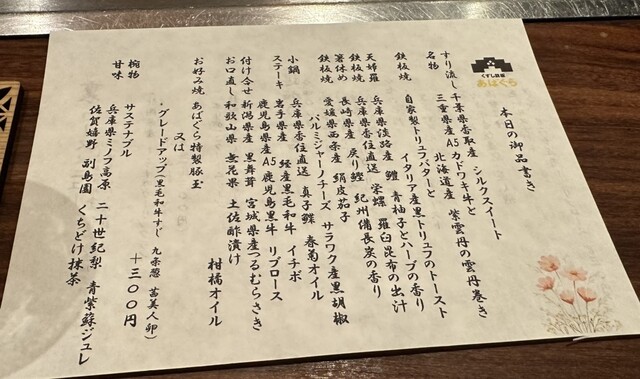 くずし鉄板
あばぐら
本日の御品書き
すり流し 千葉県香取産 シルクスイート
名物 三重県産A5カドワキ牛と
北海道産 紫雲丹の雲丹巻き
鉄板焼 自家製トリュフバターと
イタリア産黒トリュフのトースト
天婦羅 兵庫県淡路産 鱧 青柚子とハーブの香り
鉄板焼 兵庫県香住直送 栄螺 羅臼昆布の出汁
箸休め 長崎県産 戻り鰹 紀州備長炭の香り
鉄板焼 愛媛県西条産 絹皮茄子
パルミジャーノチーズ サラワク産黒胡椒
小鍋 兵庫県香住直送 真子鰈 春菊オイル
ステーキ 岩手県産 経産黒毛和牛 イチボ
鹿児島県産A5 鹿児島黒牛 リブロース
付け合せ 新潟県産 黒舞茸 宮城県産つるむらさき
お口直し 和歌山県 無花果 土佐酢漬け
柑橘オイル
お好み焼 あばぐら特製豚玉
又は
・グレードアップ(黒毛和牛すじ 九条葱 苔美人卵)
+三〇〇円
椀物 サステナブル
甘味 兵庫県ミノフ高原 二十世紀梨 青紫蘇ジュレ
佐賀嬉野 副島園 くちどけ抹茶